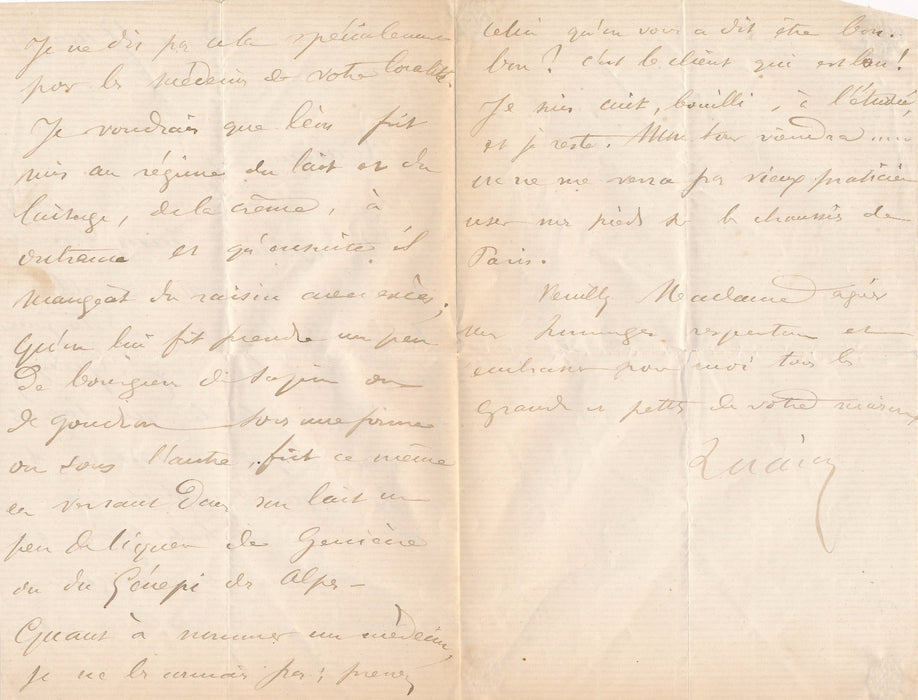 Je ne dis pas cela spécialement
pour les médecins de votre localité.
Je voudrais que Léon fût
mis au régime du lait et du
laitage, de la crême, à
outrance et qu'ensuite il
mangeât du raisin avec excès,
qu'on lui fit prendre un peu
de bourgeon de sapin ou
de goudron sous une forme
ou sous l'autre, fût ce même
en versant dans son lait un
peu de liqueur de Genièvre
ou du Génépi des Alpes —
Quant à nommer un médecin,
je ne les connais pas; prenez
celui qu'on vous a dit être bon.
bon? c'est le client qui est bon!
Je suis cuit, bouilli, à l'étuvée,
et je reste. Mon tour viendra ....
on ne me verra pas vieux praticien
user mes pieds sur les chaussées de
Paris.
Veuillez Madame agréer
mes hommages respectueux et
embrasser pour moi tous les
grands et petits de votre maison